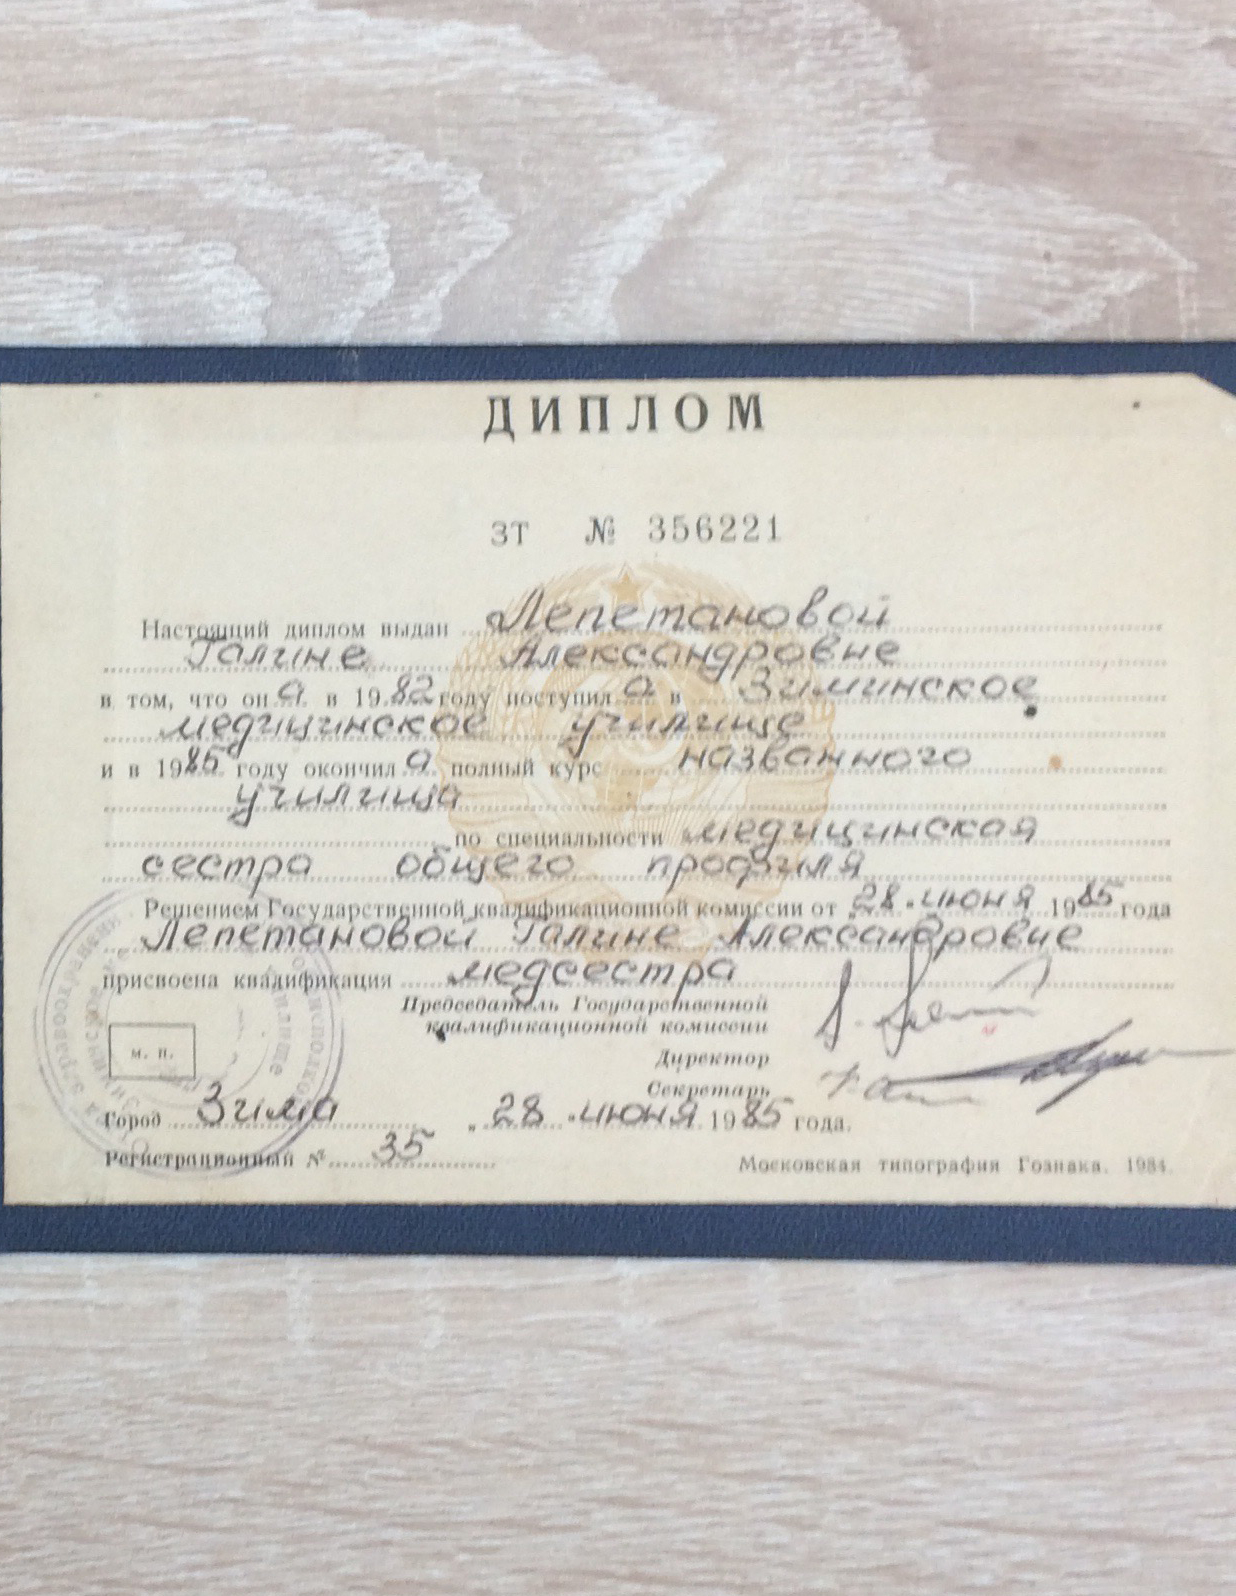 ДИПЛОМ
ЗТ № 356221
Настоящий диплом выдан Лепетановой
Галине Александровне
в том, что она в 1982 году поступила в Зиминское
медицинское училище
и в 1985 году окончила полный курс названного
училища
по специальности медицинская
сестра общего профиля
Решением Государственной квалификационной комиссии от „28“ июня 1985 года
Лепетановой Галине Александровне
присвоена квалификация медсестра
Председатель Государственной
квалификационной комиссии
Директор
Секретарь
м. п.
Город Зима „28“ июня 1985 года.
Регистрационный № 35
Московская типография Гознака. 1984.